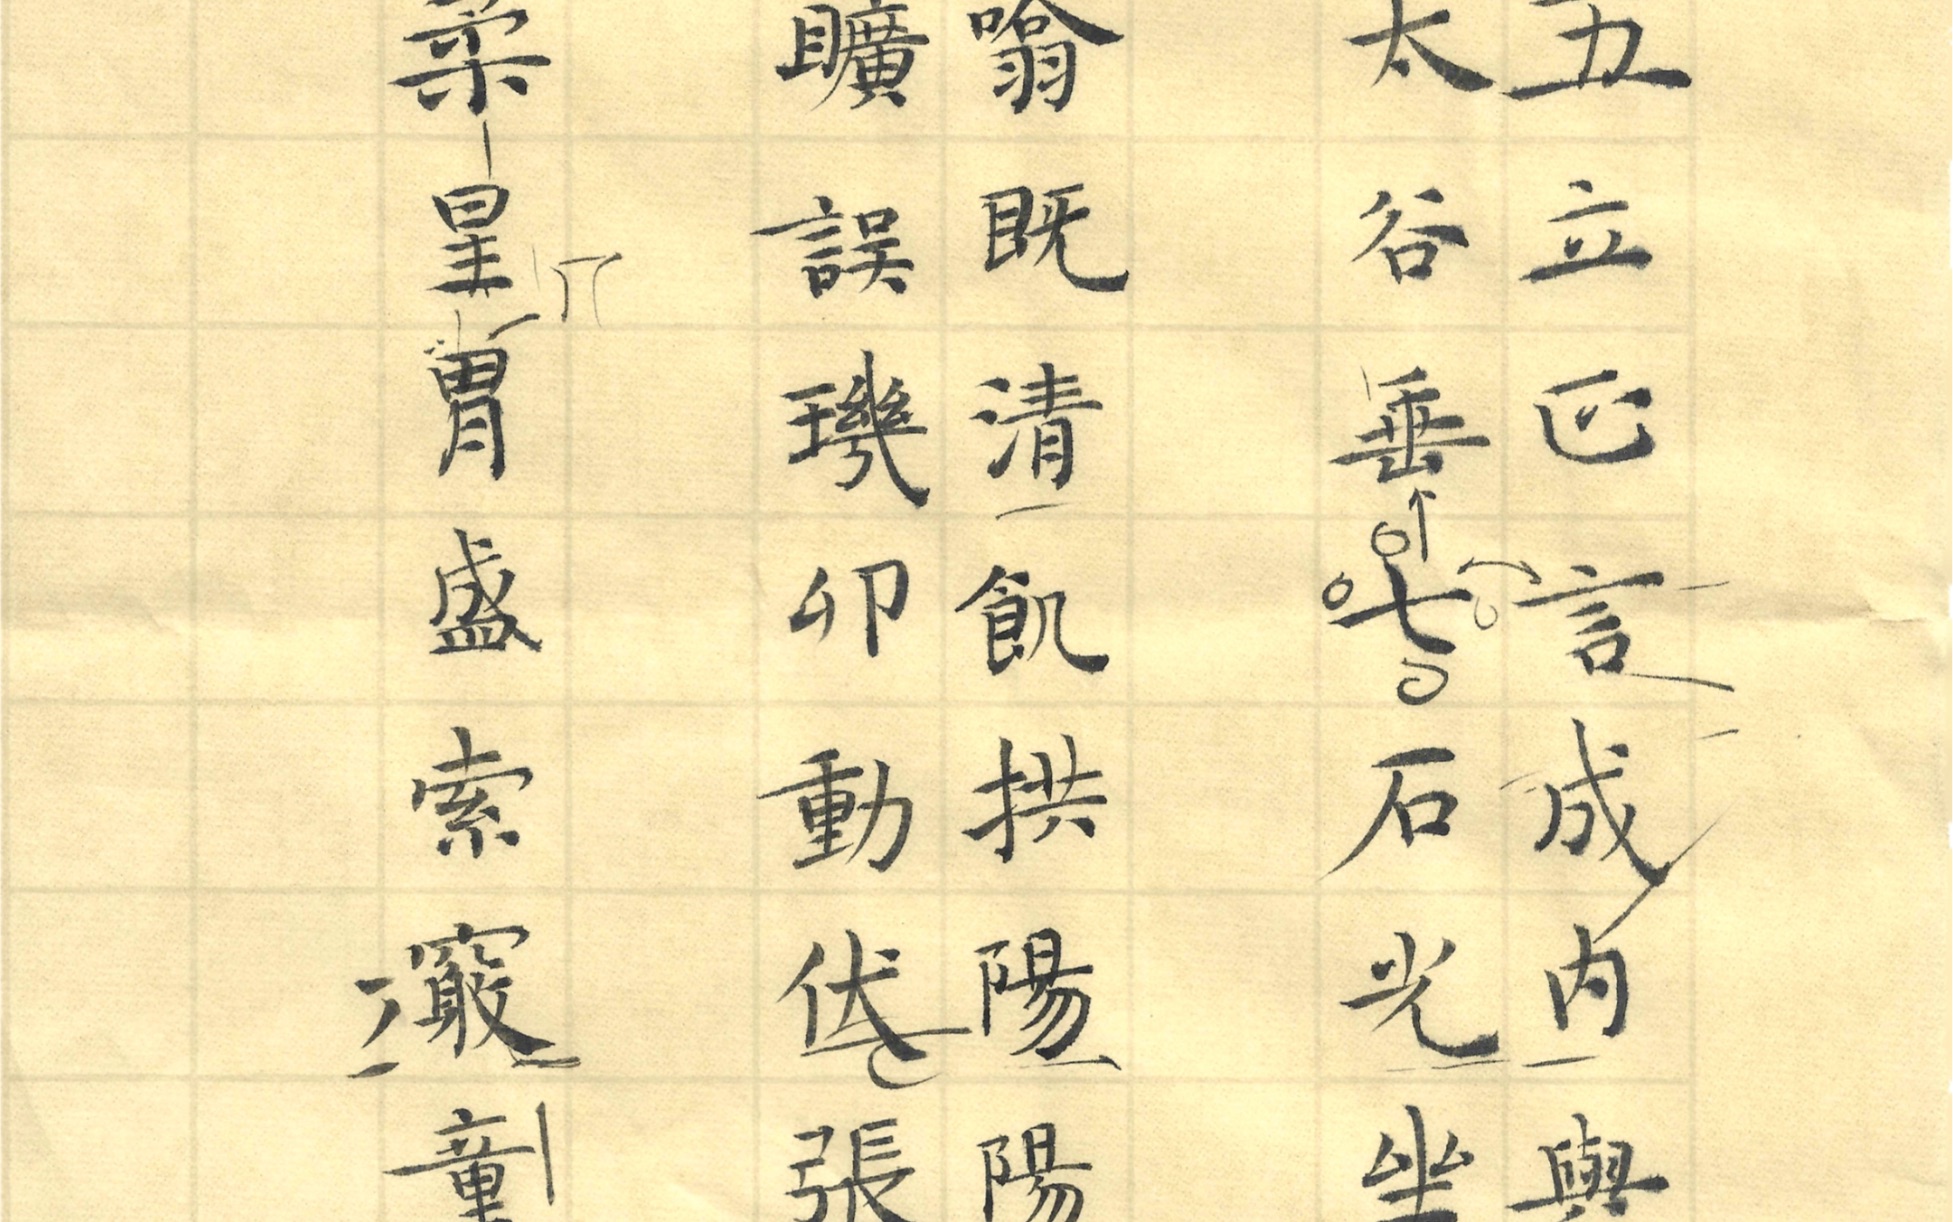 五立正言成內與
太谷垂七石光坐
噏既清飢拱陽陽
曠誤璣卯動伏張
柔星胃盛索竅童